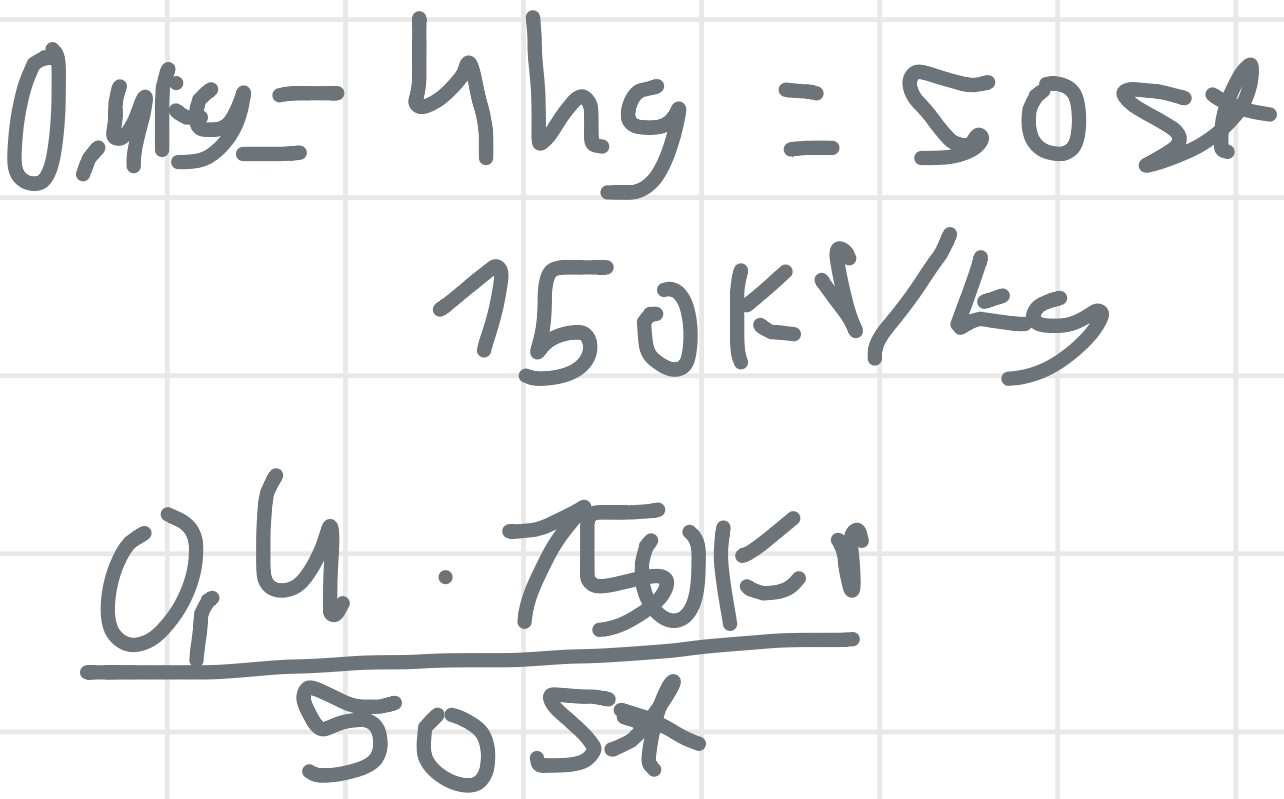 0,4kg = 4hg = 50 st
150 kr/kg
0,4 · 150kr
50 st